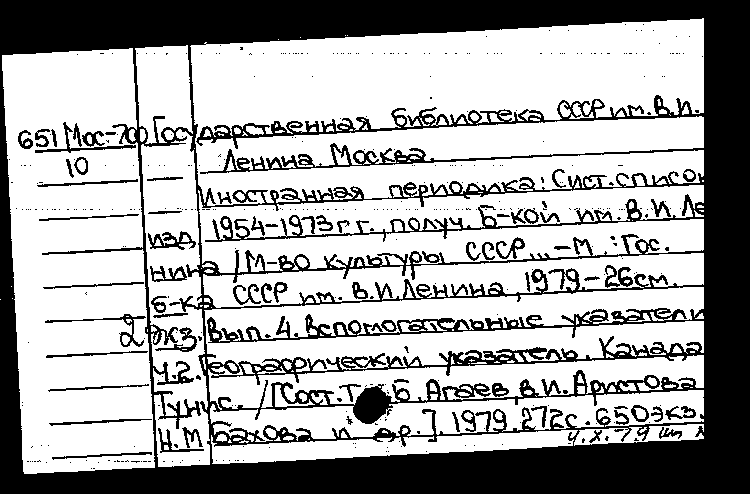 651 Мос-700 Государственная библиотека СССР им. В.И.
10 Ленина. Москва.
Иностранная периодика: Сист. список
изд. 1954-1973 г г., получ. Б-кой им. В.И. Ле
нина / М-во культуры СССР ... - М. : Гос.
б-ка СССР им. В.И. Ленина, 1979. - 26 см.
2 экз. Вып. 4. Вспомогательные указатели
Ч. 2. Географический указатель. Канада
Тунис. / [Сост. Т Б. Агаев, В.И. Аристова
Н.М. Бахова и др.]. 1979. 272 с. 650 экз.
4.X.79